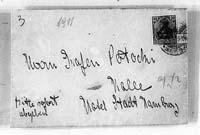 3
1911
Herrn Grafen Potocki
Halle
Hotel Stadt Hamburg
Bitte sofort
abgeben